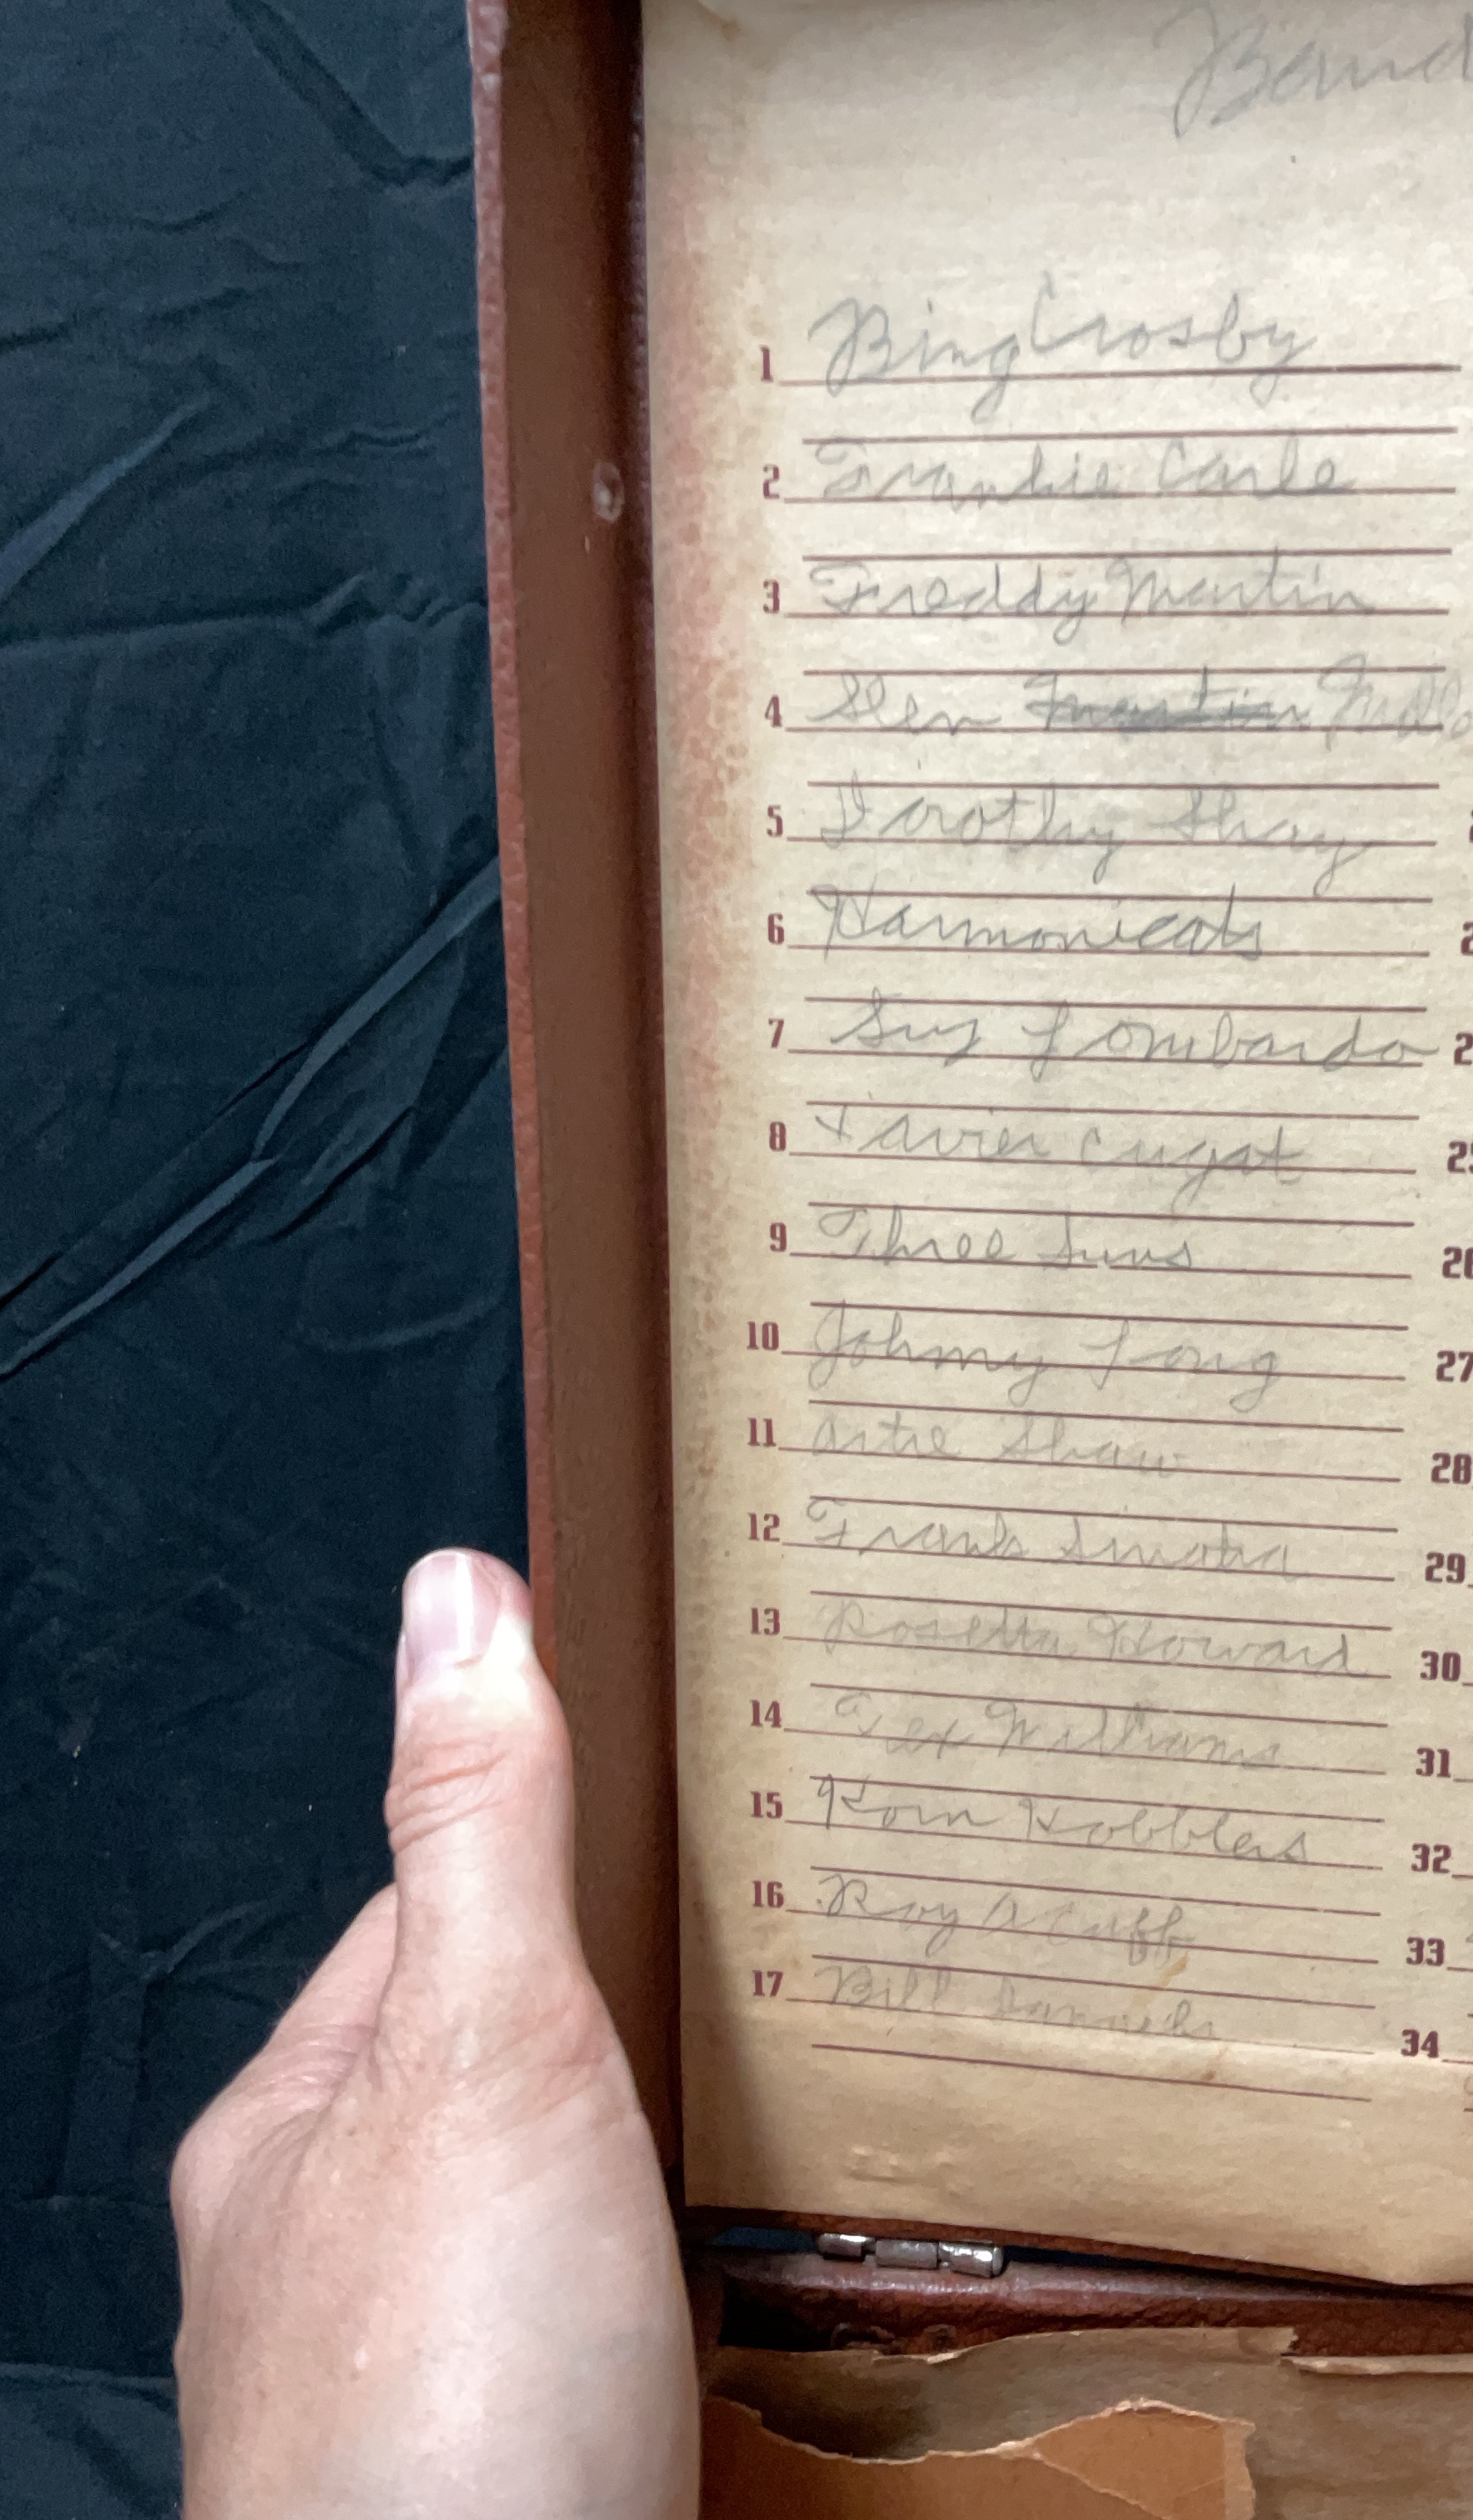 Band
1 Bing Crosby
2 Frankie Carle
3 Freddy Martin
4 Glen Martin
5 Dorothy Shay
6 Harmonicats
7 Guy Lombardo
8 Xavier Cugat
9 Three Suns
10 Johnny Long
11 Artie Shaw
12 Frank Sinatra
13 Rosetta Howard
14 Tex Williams
15 Korn Kobblers
16 Roy Acuff
17 Bill
26
27
28
29
30
31
32
33
34